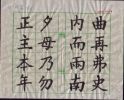 曲再弗史
内而兩南
夕母乃勿
正主本年